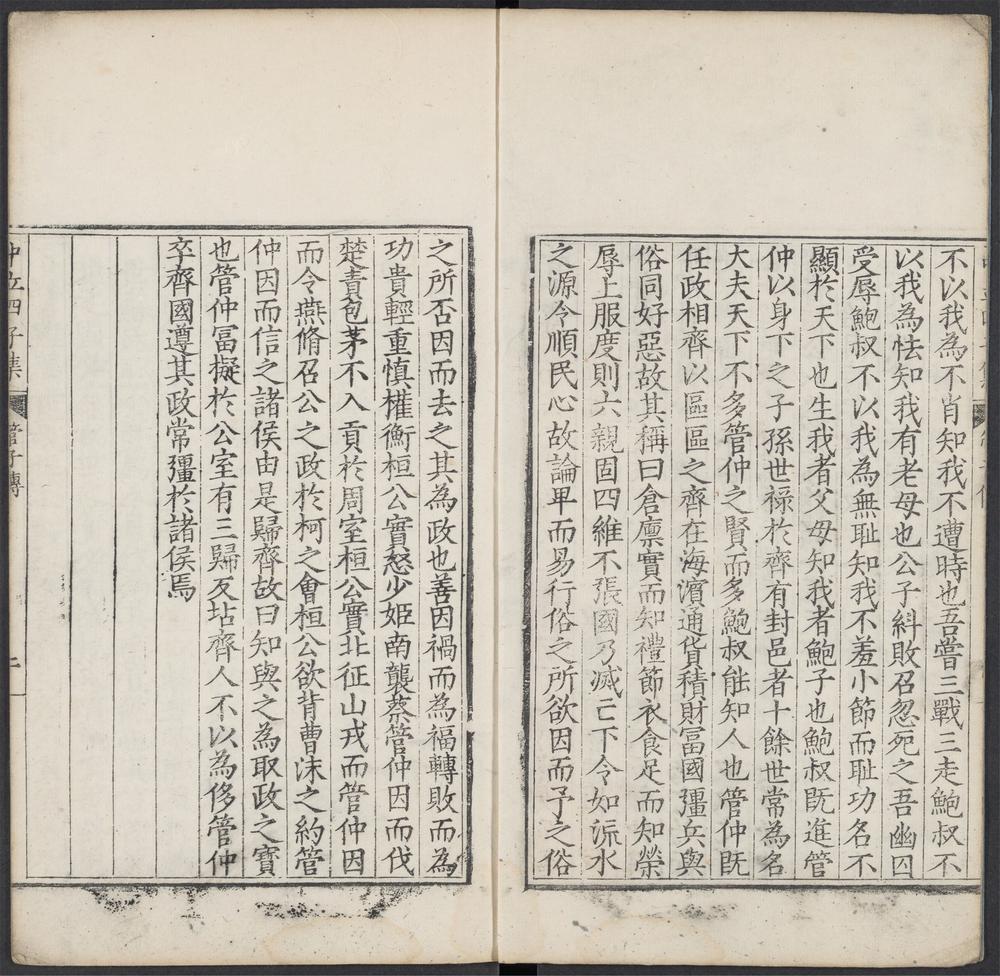 不以我為不肖知我不遭時也吾嘗三戰三走鮑叔不
以我為怯知我有老母也公子糾敗召忽死之吾幽囚
受辱鮑叔不以我為無耻知我不羞小節而耻功名不
顯於天下也生我者父母知我者鮑子也鮑叔旣進管
仲以身下之子孫世祿於齊有封邑者十餘世常為名
大夫天下不多管仲之賢而多鮑叔能知人也管仲旣
任政相齊以區區之齊在海濵通貨積財富國彊兵與
俗同好惡故其稱曰倉廪實而知禮節衣食足而知榮
辱上服度則六親固四維不張國乃滅亡下令如流水
之源令順民心故論卑而易行俗之所欲因而予之俗
之所否因而去之其為政也善因禍而為福轉敗而為
功貴輕重慎權衡桓公實怒少姬南襲蔡管仲因而伐
楚責包茅不入貢於周室桓公實北征山戎而管仲因
而令燕脩召公之政於柯之會桓公欲背曹沬之約管
仲因而信之諸侯由是歸齊故曰知與之為取政之寶
也管仲冨擬於公室有三歸反坫齊人不以為侈管仲
卒齊國遵其政常彊於諸侯焉
中立四子集
管子傳
二